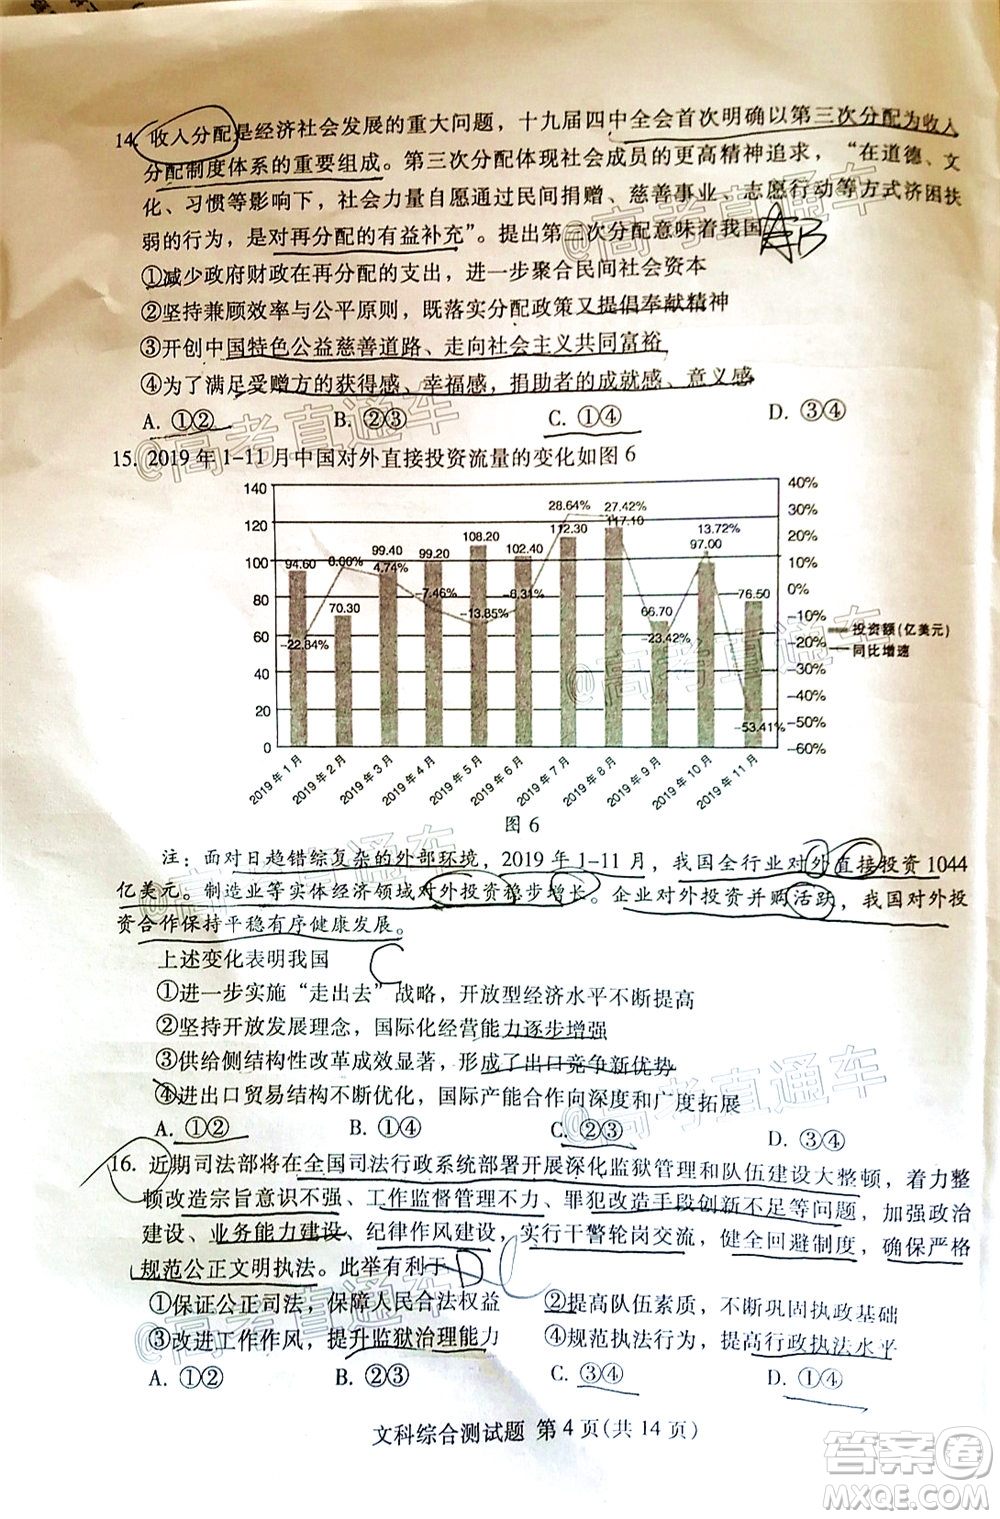 14. 收入分配是经济社会发展的重大问题，十九届四中全会首次明确以第三次分配为收入
分配制度体系的重要组成。第三次分配体现社会成员的更高精神追求，“在道德、文
化、习惯等影响下，社会力量自愿通过民间捐赠、慈善事业、志愿行动等方式济困扶
弱的行为，是对再分配的有益补充”。提出第三次分配意味着我国
AB
①减少政府财政在再分配的支出，进一步聚合民间社会资本
②坚持兼顾效率与公平原则，既落实分配政策又提倡奉献精神
③开创中国特色公益慈善道路、走向社会主义共同富裕
④为了满足受赠方的获得感、幸福感，捐助者的成就感、意义感
A. ①② B. ②③ C. ①④ D. ③④
@高考直通车
15. 2019 年 1-11 月中国对外直接投资流量的变化如图 6
140 120 100 80 60 40 20 0
40% 30% 20% 10% 0% -10% -20% -30% -40% -50% -60%
94.60 70.30 99.40 99.20 108.20 102.40 112.30 117.10 66.70 97.00 76.50
-22.84% 8.00% 4.74% -7.46% -13.85% -8.31% 28.64% 27.42% -23.42% 13.72% -53.41%
投资额(亿美元)
同比增速
2019年1月 2019年2月 2019年3月 2019年4月 2019年5月 2019年6月 2019年7月 2019年8月 2019年9月 2019年10月 2019年11月
图 6
注：面对日趋错综复杂的外部环境，2019 年 1-11 月，我国全行业对外直接投资 1044
亿美元。制造业等实体经济领域对外投资稳步增长。企业对外投资并购活跃，我国对外投
资合作保持平稳有序健康发展。
上述变化表明我国
C
①进一步实施“走出去”战略，开放型经济水平不断提高
②坚持开放发展理念，国际化经营能力逐步增强
③供给侧结构性改革成效显著，形成了出口竞争新优势
④进出口贸易结构不断优化，国际产能合作向深度和广度拓展
A. ①② B. ①④ C. ②③ D. ③④
@高考直通车
16. 近期司法部将在全国司法行政系统部署开展深化监狱管理和队伍建设大整顿，着力整
顿改造宗旨意识不强、工作监督管理不力、罪犯改造手段创新不足等问题，加强政治
建设、业务能力建设、纪律作风建设，实行干警轮岗交流，健全回避制度，确保严格
规范公正文明执法。此举有利于
D
①保证公正司法，保障人民合法权益 ②提高队伍素质，不断巩固执政基础
③改进工作作风，提升监狱治理能力 ④规范执法行为，提高行政执法水平
A. ①② B. ②③ C. ③④ D. ①④
文科综合测试题 第 4 页(共 14 页)
答案圈
MXQE.COM